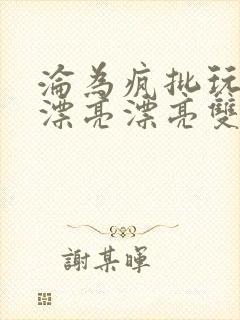 淪為瘋批玩
漂亮漂亮雙
謝某暉